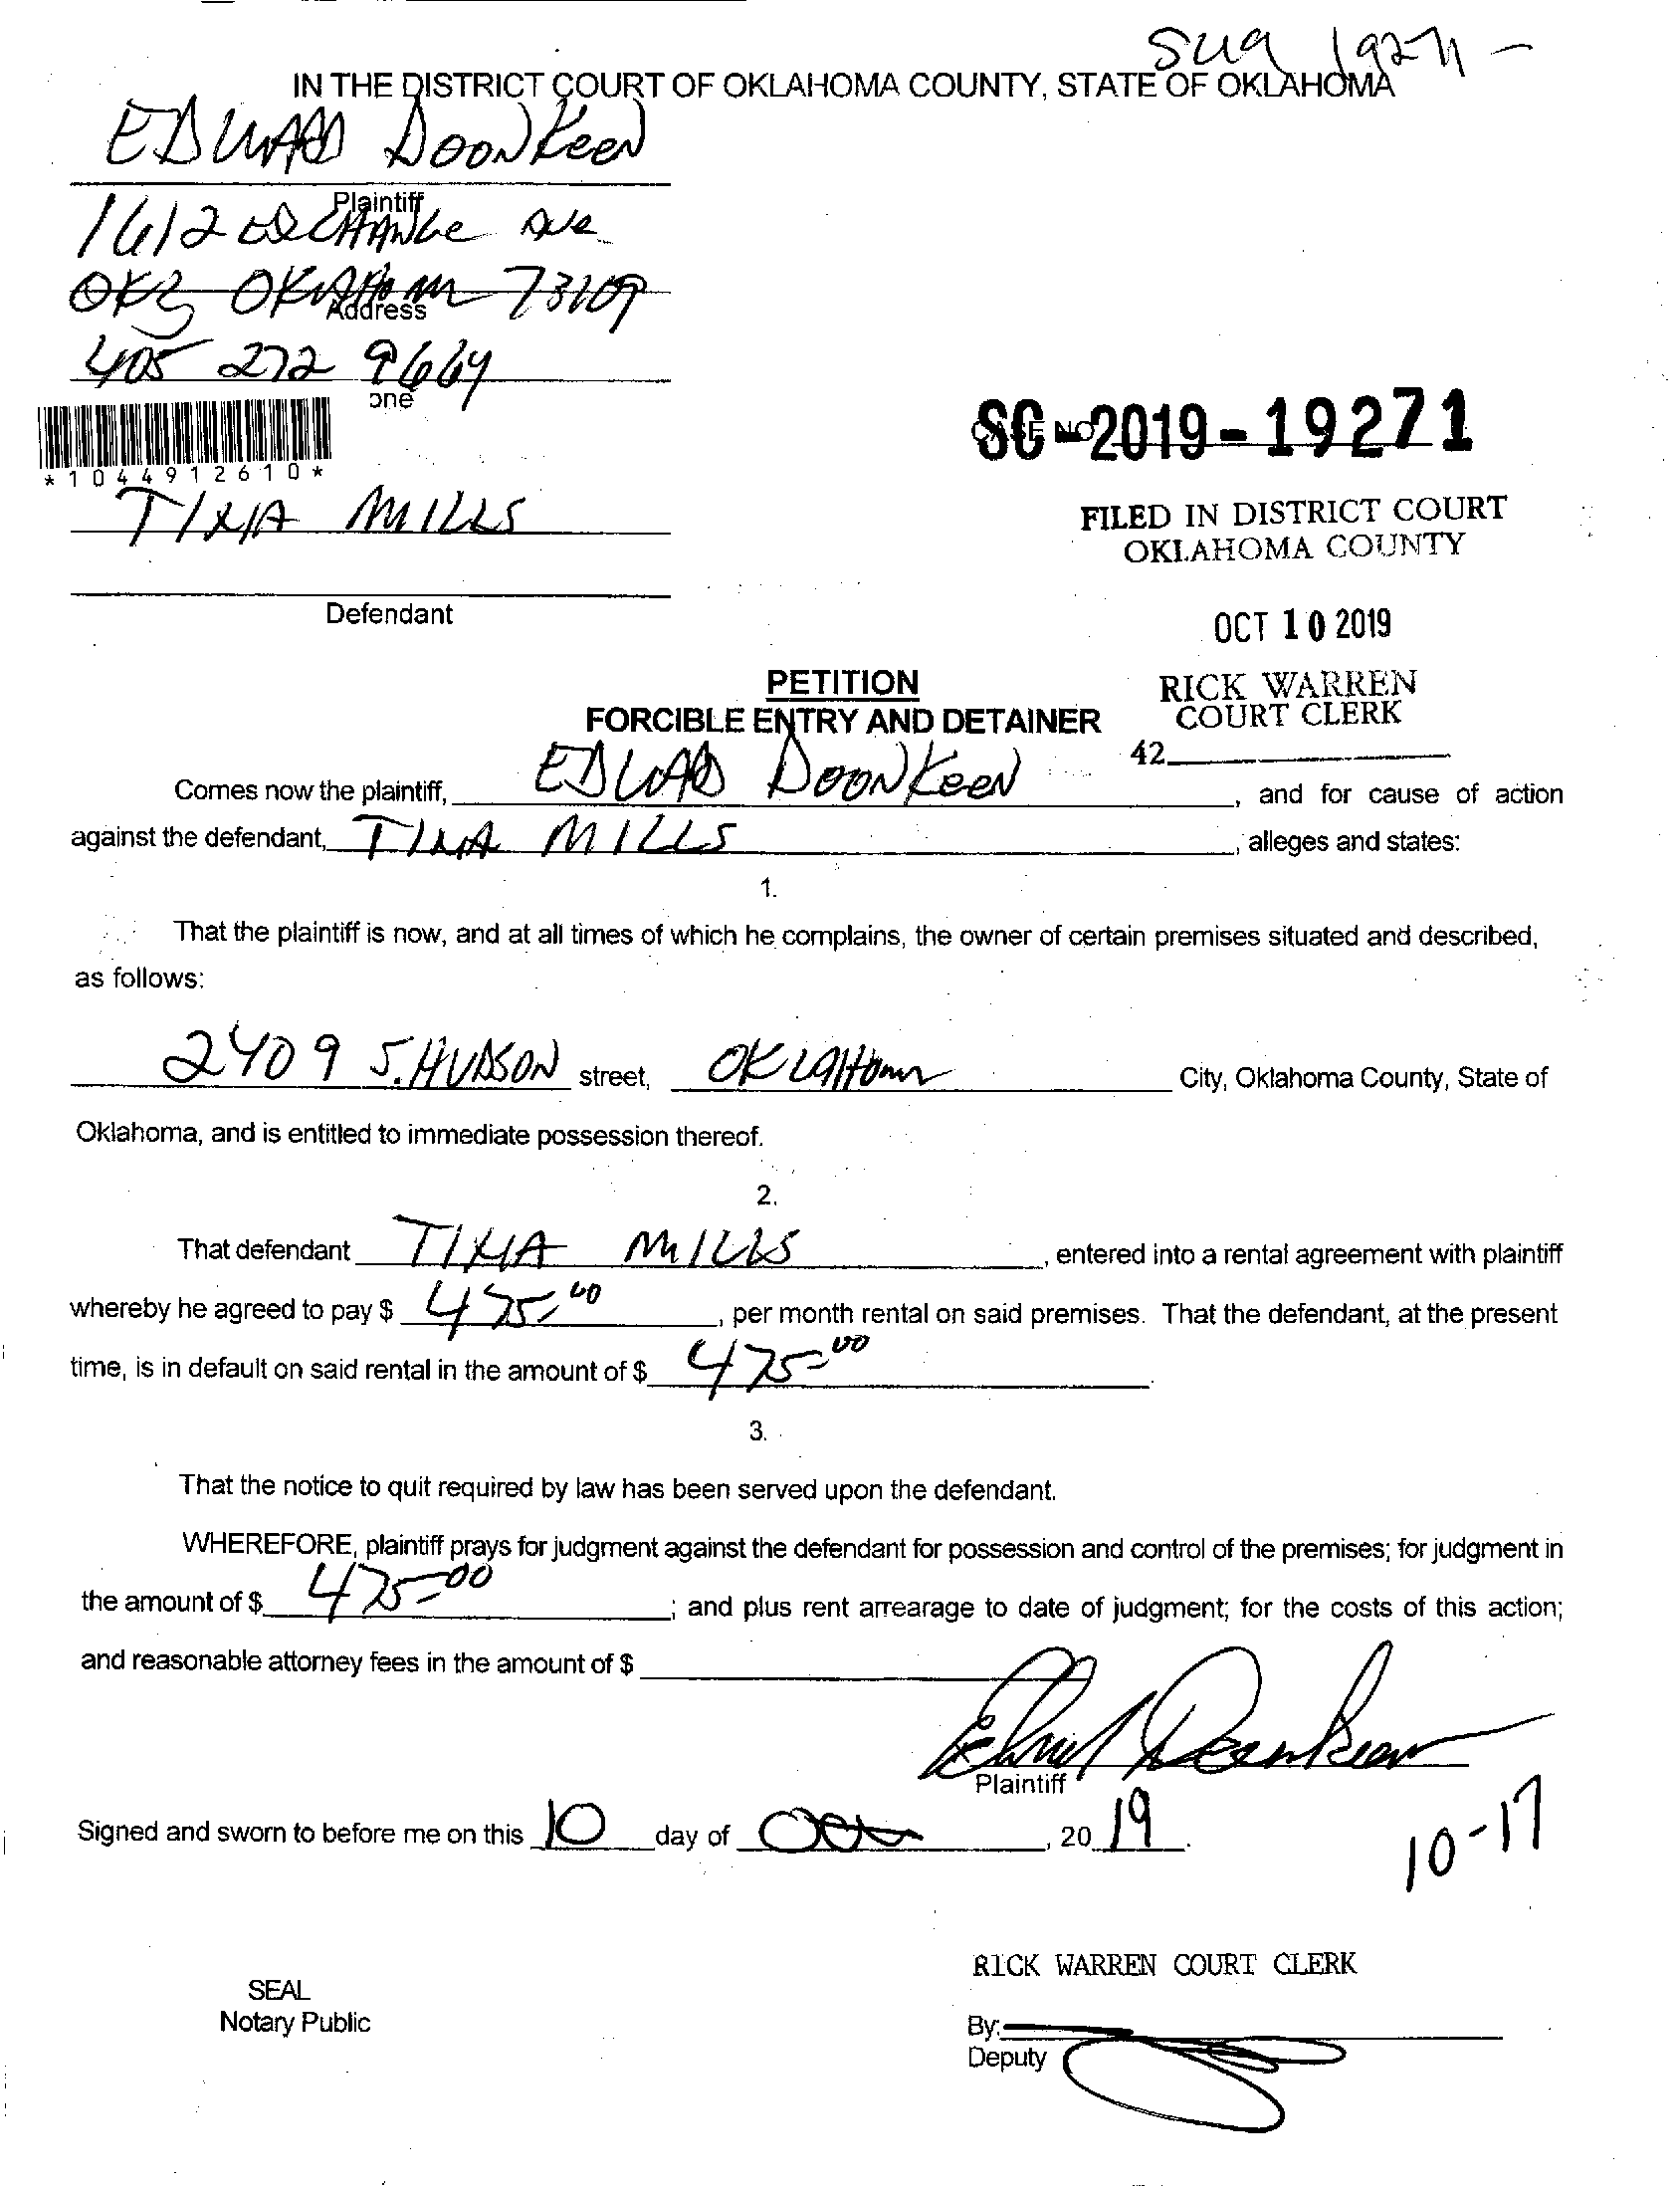 IN THE DISTRICT COURT OF OKLAHOMA COUNTY, STATE OF OKLAHOMA
EDWARD DOONKEEN
Plaintiff
1612 EXCHANGE AVE
OKC OKLAHOMA 73109
Address
405 272 9664
one
SC-2019-19271
CASE NO
*1044912610*
TINA MILLS
FILED IN DISTRICT COURT
OKLAHOMA COUNTY
Defendant
OCT 10 2019
PETITION
FORCIBLE ENTRY AND DETAINER
RICK WARREN
COURT CLERK
42
Comes now the plaintiff, EDWARD DOONKEEN, and for cause of action
against the defendant, TINA MILLS, alleges and states:
1.
That the plaintiff is now, and at all times of which he complains, the owner of certain premises situated and described,
as follows:
2409 S. HUDSON street, OKLAHOMA City, Oklahoma County, State of
Oklahoma, and is entitled to immediate possession thereof.
2.
That defendant TINA MILLS, entered into a rental agreement with plaintiff
whereby he agreed to pay $ 475.00, per month rental on said premises. That the defendant, at the present
time, is in default on said rental in the amount of $ 475.00.
3.
That the notice to quit required by law has been served upon the defendant.
WHEREFORE, plaintiff prays for judgment against the defendant for possession and control of the premises; for judgment in
the amount of $ 475.00; and plus rent arrearage to date of judgment; for the costs of this action;
and reasonable attorney fees in the amount of $
Edward Doonkeen
Plaintiff
Signed and sworn to before me on this 10 day of Oct, 20 19.
10-17
RICK WARREN COURT CLERK
SEAL
Notary Public
By:
Deputy